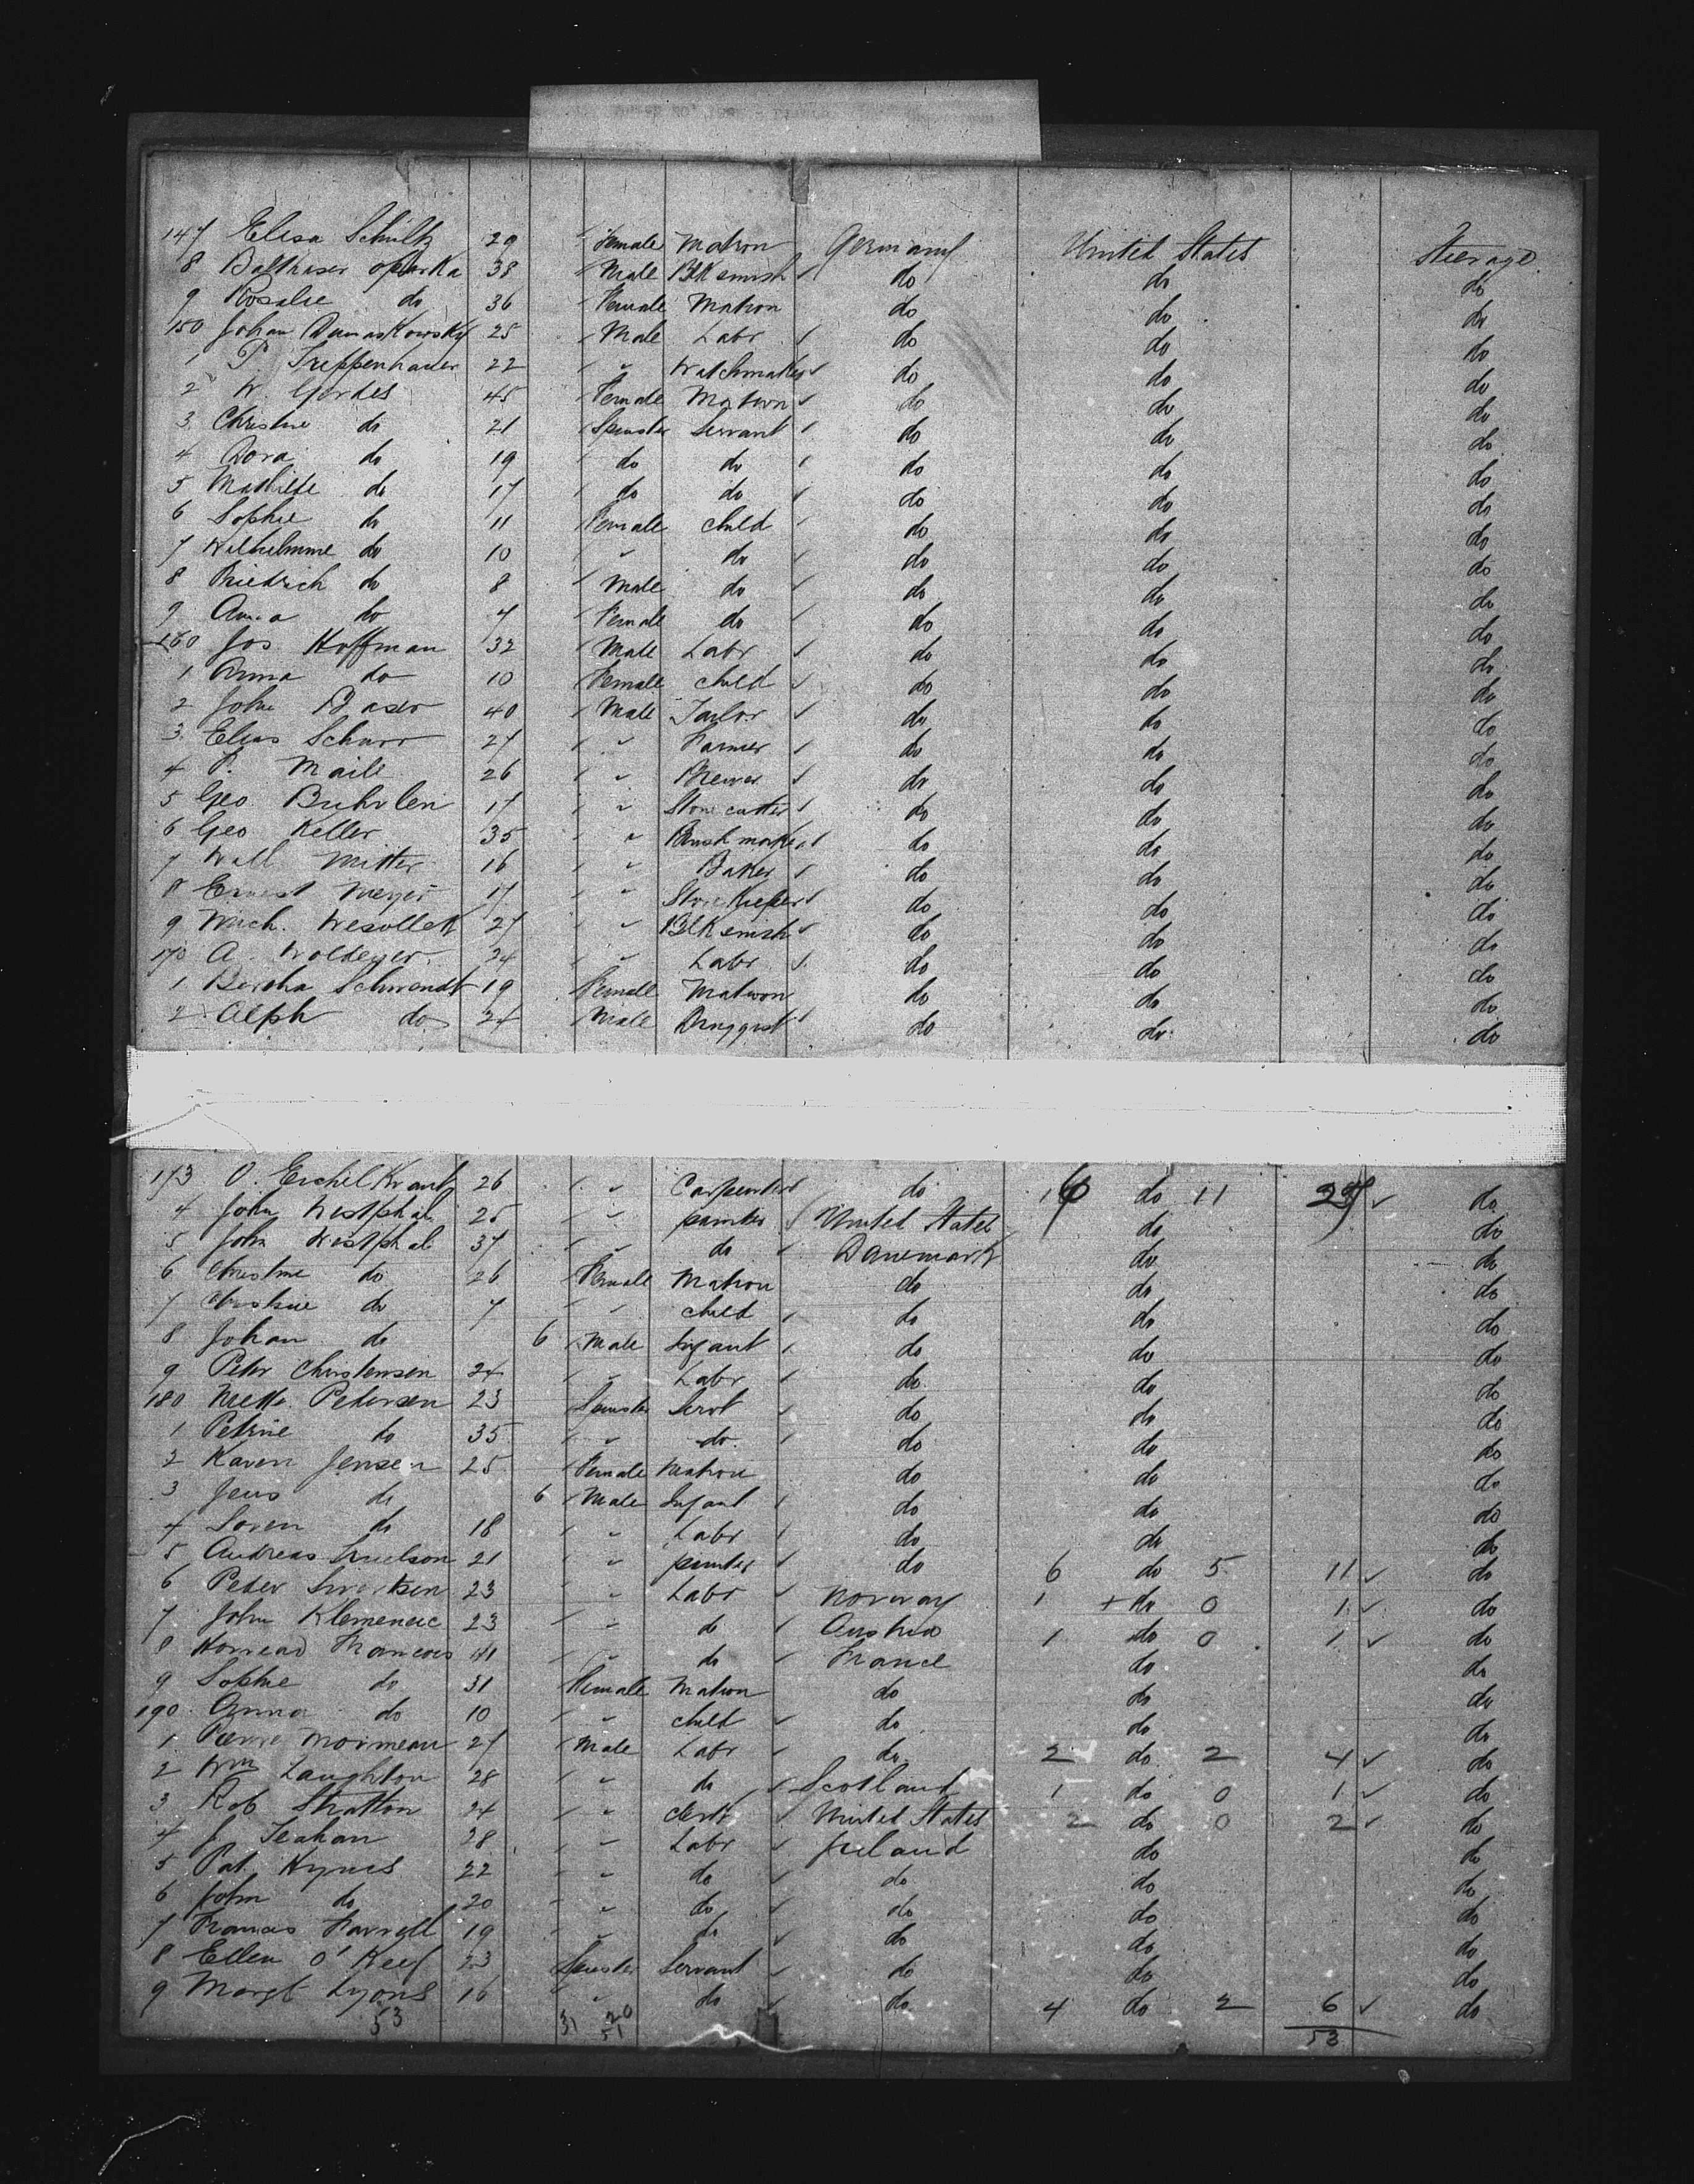 147 Elisa Schultz 29 Female Matron Germany United States Steerage
8 Balthaser Oparka 38 Male Blksmith do do do
9 Rosalie do 36 Female Matron do do do
150 Johan Damaskowsky 25 Male Labr do do do
1 P. Treppenhauer 22 " Watchmaker do do do
2 W. Gerdes 45 Female Matron do do do
3 Christine do 21 Spinster Servant do do do
4 Dora do 19 do do do do do
5 Mathilde do 17 do do do do do
6 Sophie do 11 Female child do do do
7 Wilhelmine do 10 " do do do do
8 Friedrich do 8 Male do do do do
9 Anna do 4 Female do do do do
160 Jos. Hoffman 32 Male Labr do do do
1 Anna do 10 Female child do do do
2 John 40 Male Tailor do do do
3 Elias Schurr 27 " Farmer do do do
4 P. Maile 26 " Brewer do do do
5 Geo. Buhrlen 17 " Stone cutter do do do
6 Geo Keller 35 " Brushmaker do do do
7 Mitter 16 " Baker do do do
8 Ernest Meyer 17 " Storekeeper do do do
9 Mich. Wesollek 27 " Blksmith do do do
170 A. Woldeyer 24 " Labr do do do
1 Bertha Schwandt 19 Female Matron do do do
2 Alph do 24 Male Druggist do do do
173 O. Eichelkrantz 26 " Carpenter do 16 do 11 27 do
4 John Westphal 25 " painter United States do do
5 John Westphal 37 " do Danemark do do
6 Christine do 26 Female Matron do do do
7 do 7 " child do do do
8 Johan do 6 Male Infant do do do
9 Peter Christensen 24 " Labr do do do
180 Mette Petersen 23 Spinster Servt do do do
1 Petrine do 35 " do do do do
2 Karen Jensen 25 Female Matron do do do
3 Jens do 6 Male Infant do do do
4 Soren do 18 " Labr do do do
5 Andreas 21 " painter do 6 do 5 11 do
6 Peder Sivertsen 23 " Labr Norway 1 do 0 1 do
7 John Klemencic 23 " do Austria 1 do 0 1 do
8 Francois 41 " do France do do
9 Sophie do 31 Female Matron do do do
190 Anna do 10 " child do do do
1 Pierre Moimeau 27 Male Labr do 2 do 2 4 do
2 Wm Laughton 28 " do Scotland 1 do 0 1 do
3 Rob Stratton 24 " Clerk United States 2 do 0 2 do
4 J. Leahan 28 " Labr Ireland do do
5 Pat Hynes 22 " do do do do
6 John do 20 " do do do do
7 Francis Farrell 19 " do do do do
8 Ellen O'Keef 23 Spinster Servant do do do
9 Margt Lyons 16 " do do 4 do 2 6 do
53 31 20 53
51